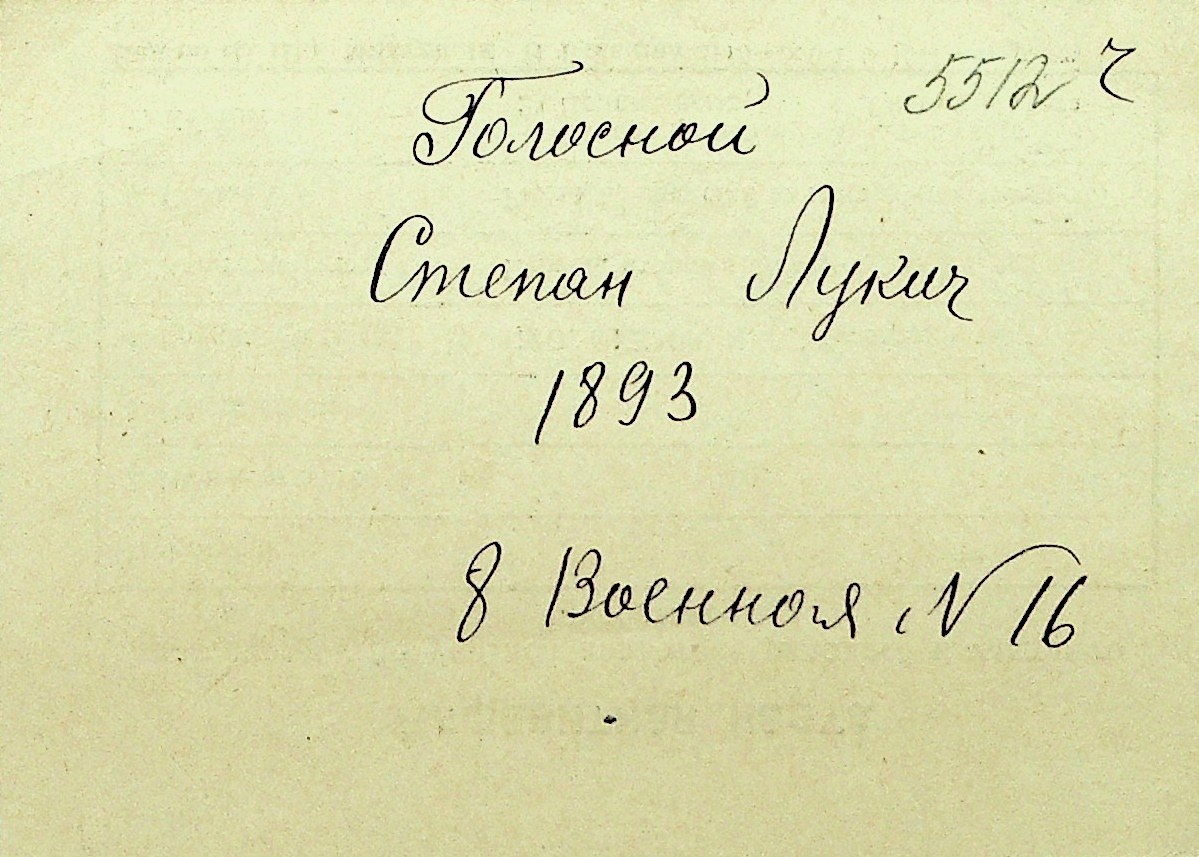 5512 ч
Голосной
Степан Лукич
1893
8 Военная № 16